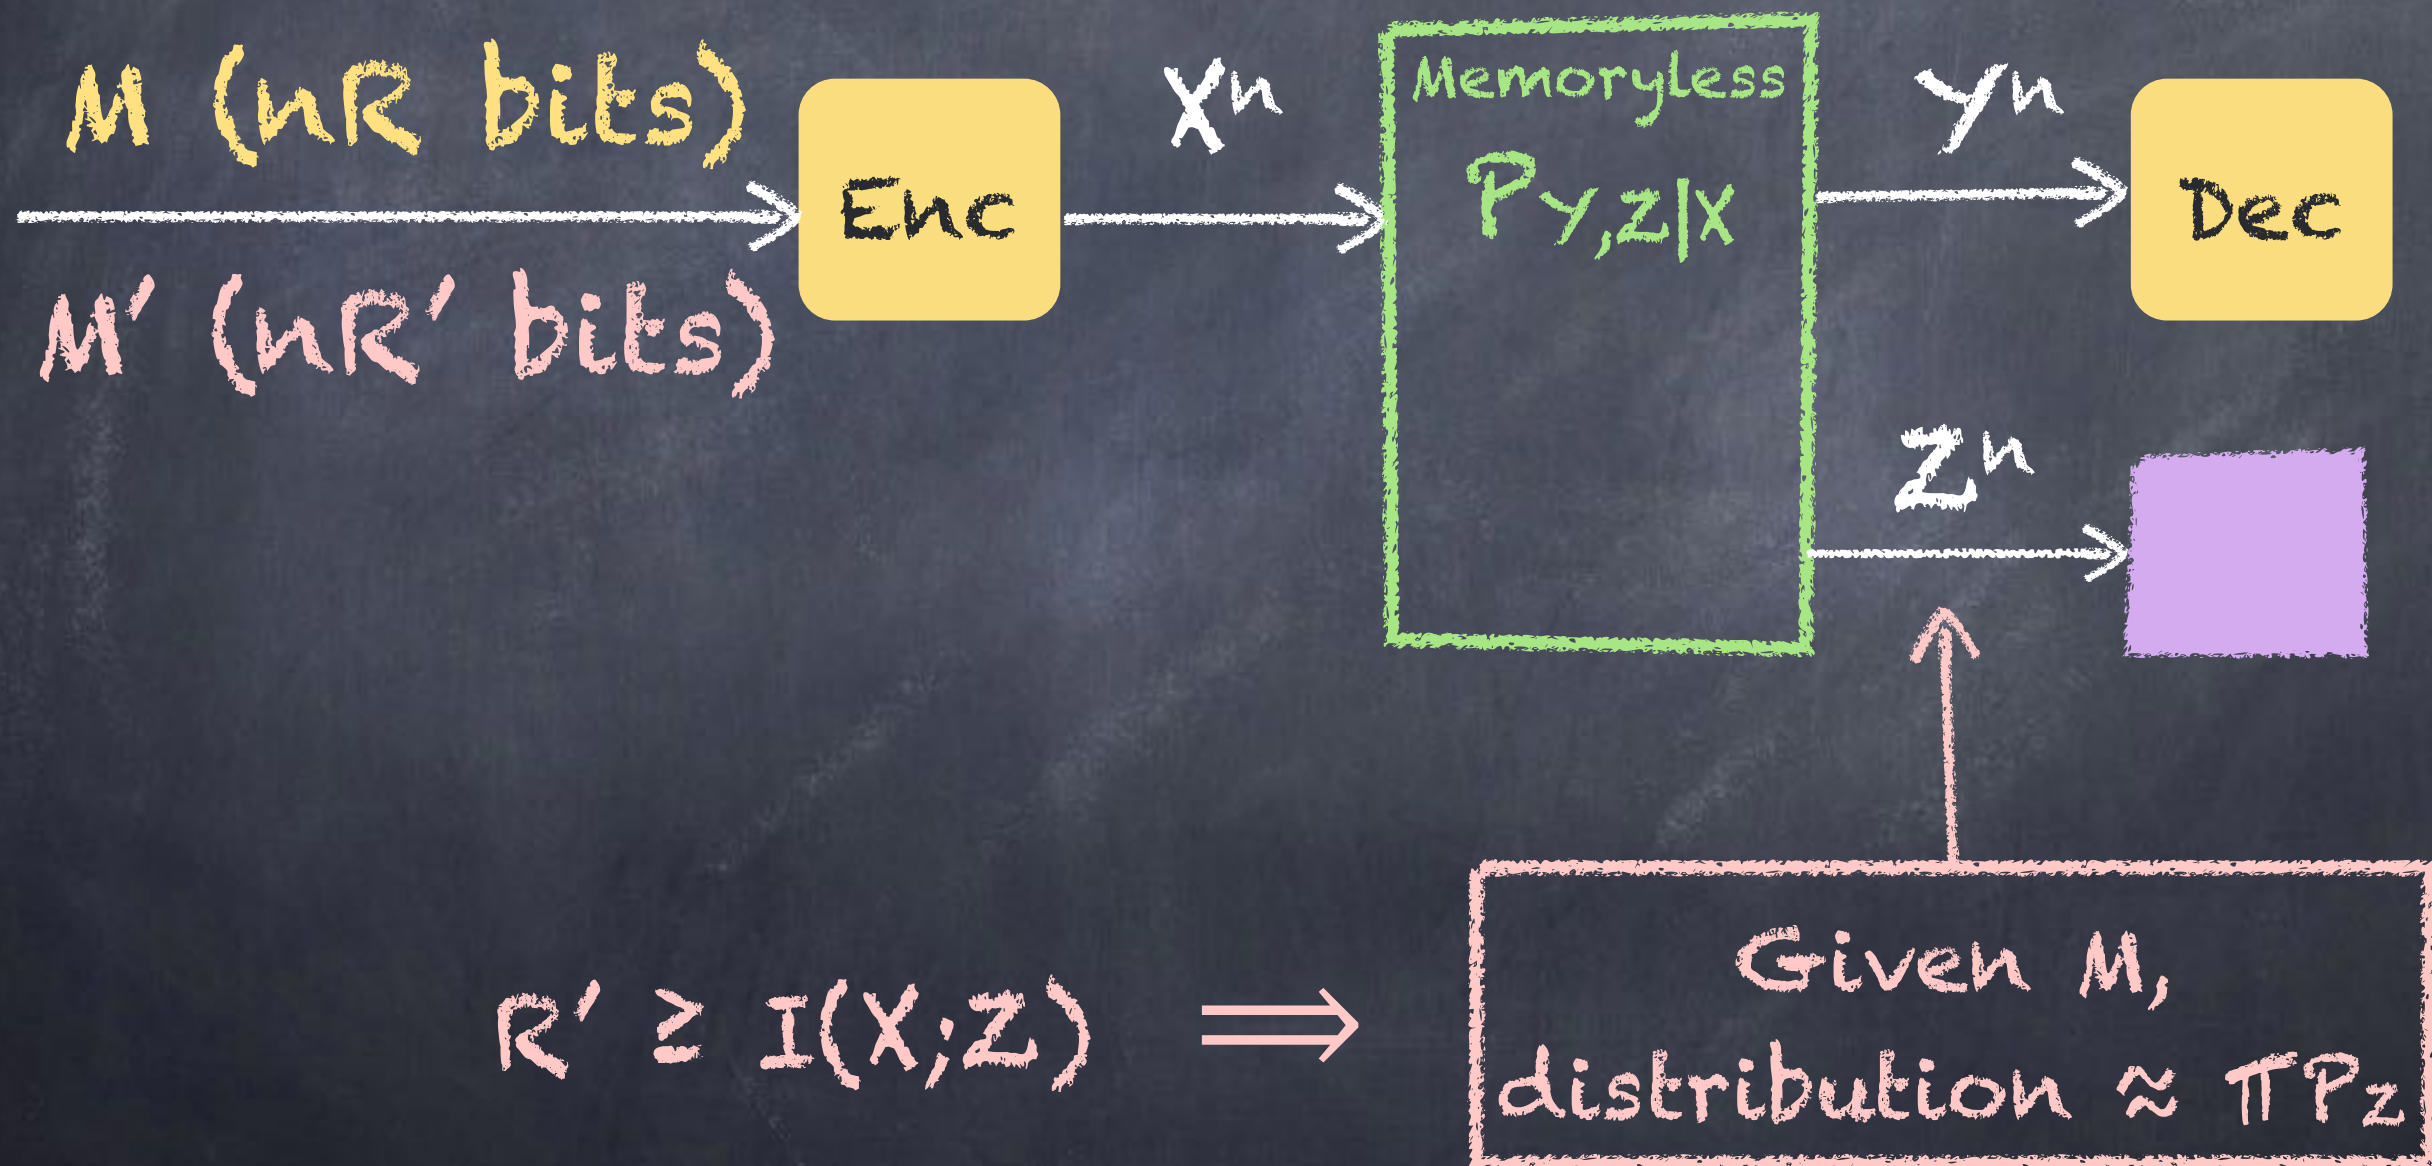 M (nR bits)
M′ (nR′ bits)
Enc
Xⁿ
Memoryless
P_Y,Z|X
Yⁿ
Dec
Zⁿ
R′ ≥ I(X;Z) ⟹
Given M,
distribution ≈ πP_Z